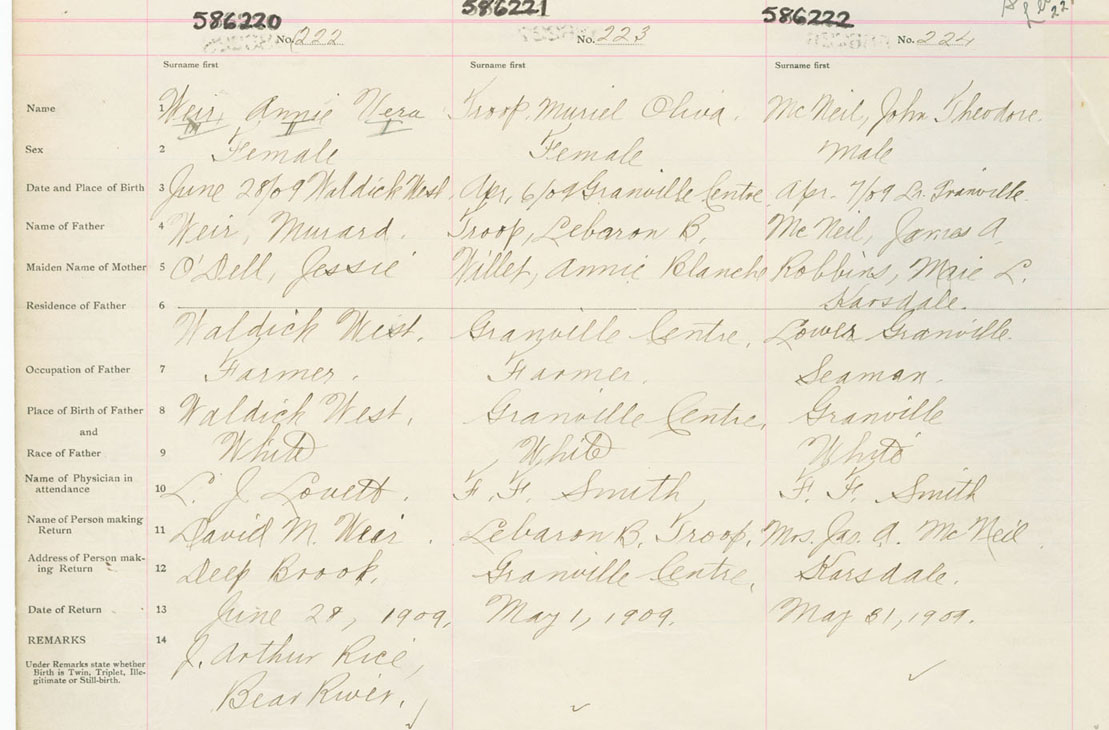 586220 586221 586222
No. 222 No. 223 No. 224
22
Surname first Surname first Surname first
Name 1 Weir, Annie Vera Troop, Muriel Oliva. McNeil, John Theodore.
Sex 2 Female Female Male
Date and Place of Birth 3 June 28/09 Waldick West. Apr. 6/09 Granville Centre Apr. 7/09 Lr. Granville.
Name of Father 4 Weir, Murard. Troop, Lebaron B. McNeil, James A.
Maiden Name of Mother 5 O'Dell, Jessie Willet, Annie Blanche Robbins, Maie L.
Residence of Father 6 Karsdale.
Waldick West. Granville Centre, Lower Granville.
Occupation of Father 7 Farmer. Farmer. Seaman.
Place of Birth of Father 8 Waldick West. Granville Centre, Granville
and
Race of Father 9 White White White
Name of Physician in attendance 10 L. J. Lovett. F. F. Smith, F. F. Smith
Name of Person making Return 11 David M. Weir. Lebaron B. Troop, Mrs. Jas. A. McNeil.
Address of Person mak-ing Return 12 Deep Brook. Granville Centre, Karsdale.
Date of Return 13 June 28, 1909. May 1, 1909. May 31, 1909.
REMARKS 14 J. Arthur Rice,
Under Remarks state whether
Birth is Twin, Triplet, Ille-
gitimate or Still-birth.
Bear River.